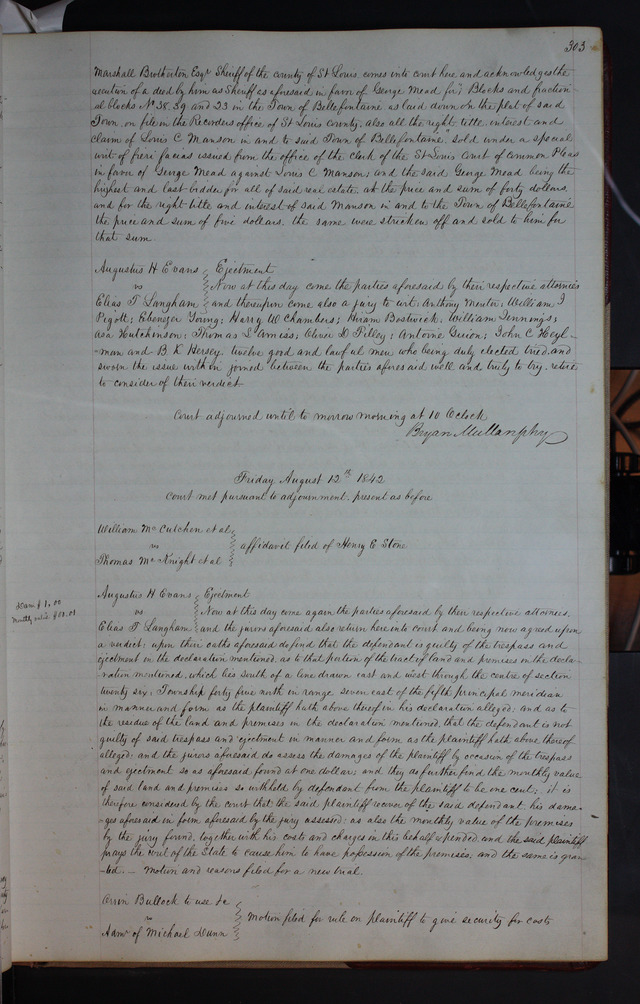 303
Marshall Brotherton Esqr Sheriff of the county of St Louis comes into court here and acknowledges the
execution of a deed by him as Sheriff as aforesaid in favor of George Mead for Blocks and fraction-
al blocks No 38. 39 and 23 in the Town of Bellefontaine as laid down on the plat of said
Town, on file in the Recorders office of St Louis county; also all the right title interest and
claim of Louis C Manson in and to said Town of Bellefontaine, sold under a special
writ of fieri facias issued from the office of the clerk of the St Louis Court of common Pleas
in favor of George Mead against Louis C Manson; and the said George Mead being the
highest and last bidder for all of said real estate, at the price and sum of forty dollars
and for the right title and interest of said Manson in and to the Town of Bellefontaine
the price and sum of five dollars. the same were stricken off and sold to him for
that sum
Augustus H Evans Ejectment
vs Now at this day come the parties aforesaid by their respective attornies
Elias T Langham and thereupon come also a jury to wit: Anthony ; William J
Pigott; Ebenezer Young; Harry W Chambers; Hiram Bostwick; William Jennings;
Asa Hutchinson; Thomas S Amiss; Oliver D Filley; Antoine Guion; John C Heyl-
-man and B K Hersey twelve good and lawful men who being duly elected tried, and
sworn the issue within joined between the parties aforesaid well and truly to try, retire
to consider of their verdict
Court adjourned until to morrow morning at 10 Oclock
Bryan Mullanphy
Friday August 12th 1842
Court met pursuant to adjournment. present as before
William Mc Cutchen et al
vs affidavit filed of Henry E Stone
Thomas Mc Knight et al
Augustus H Evans Ejectment
Dam $1.00
vs Now at this day come again the parties aforesaid by their respective attornies.
Monthly value $00.01
Elias T Langham and the jurors aforesaid also return here into court and being now agreed upon
a verdict; upon their oaths aforesaid do find that the defendant is guilty of the trespass and
ejectment in the declaration mentioned, as to that portion of the tract of land and premises in the decla-
-ration mentioned, which lies south of a line drawn east and west through the centre of section
twenty six; Township forty five north in range seven east of the fifth principal meridian
in manner and form as the plaintiff hath above thereof in his declaration alleged; and as to
the residue of the land and premises in the declaration mentioned, that the defendant is not
guilty of said trespass and ejectment in manner and form as the plaintiff hath above thereof
alleged: and the jurors aforesaid do assess the damages of the plaintiff by occasion of the trespass
and ejectment so as aforesaid found at one dollar; and they do further find the monthly value
of said land and premises so withheld by defendant from the plaintiff to be one cent; it is
therefore considered by the court that the said plaintiff recover of the said defendant, his dama-
-ges aforesaid in form aforesaid by the jury assessed: as also the monthly value of the premises
by the jury found, together with his costs and charges in this behalf expended, and the said plaintiff
prays the writ of the State to cause him to have possession of the premises; and the same is gran-
-ted. — Motion and reasons filed for a new trial.
Orrin Bullock to use &c
vs Motion filed for rule on plaintiff to give security for costs
Admr of Michael Dunn